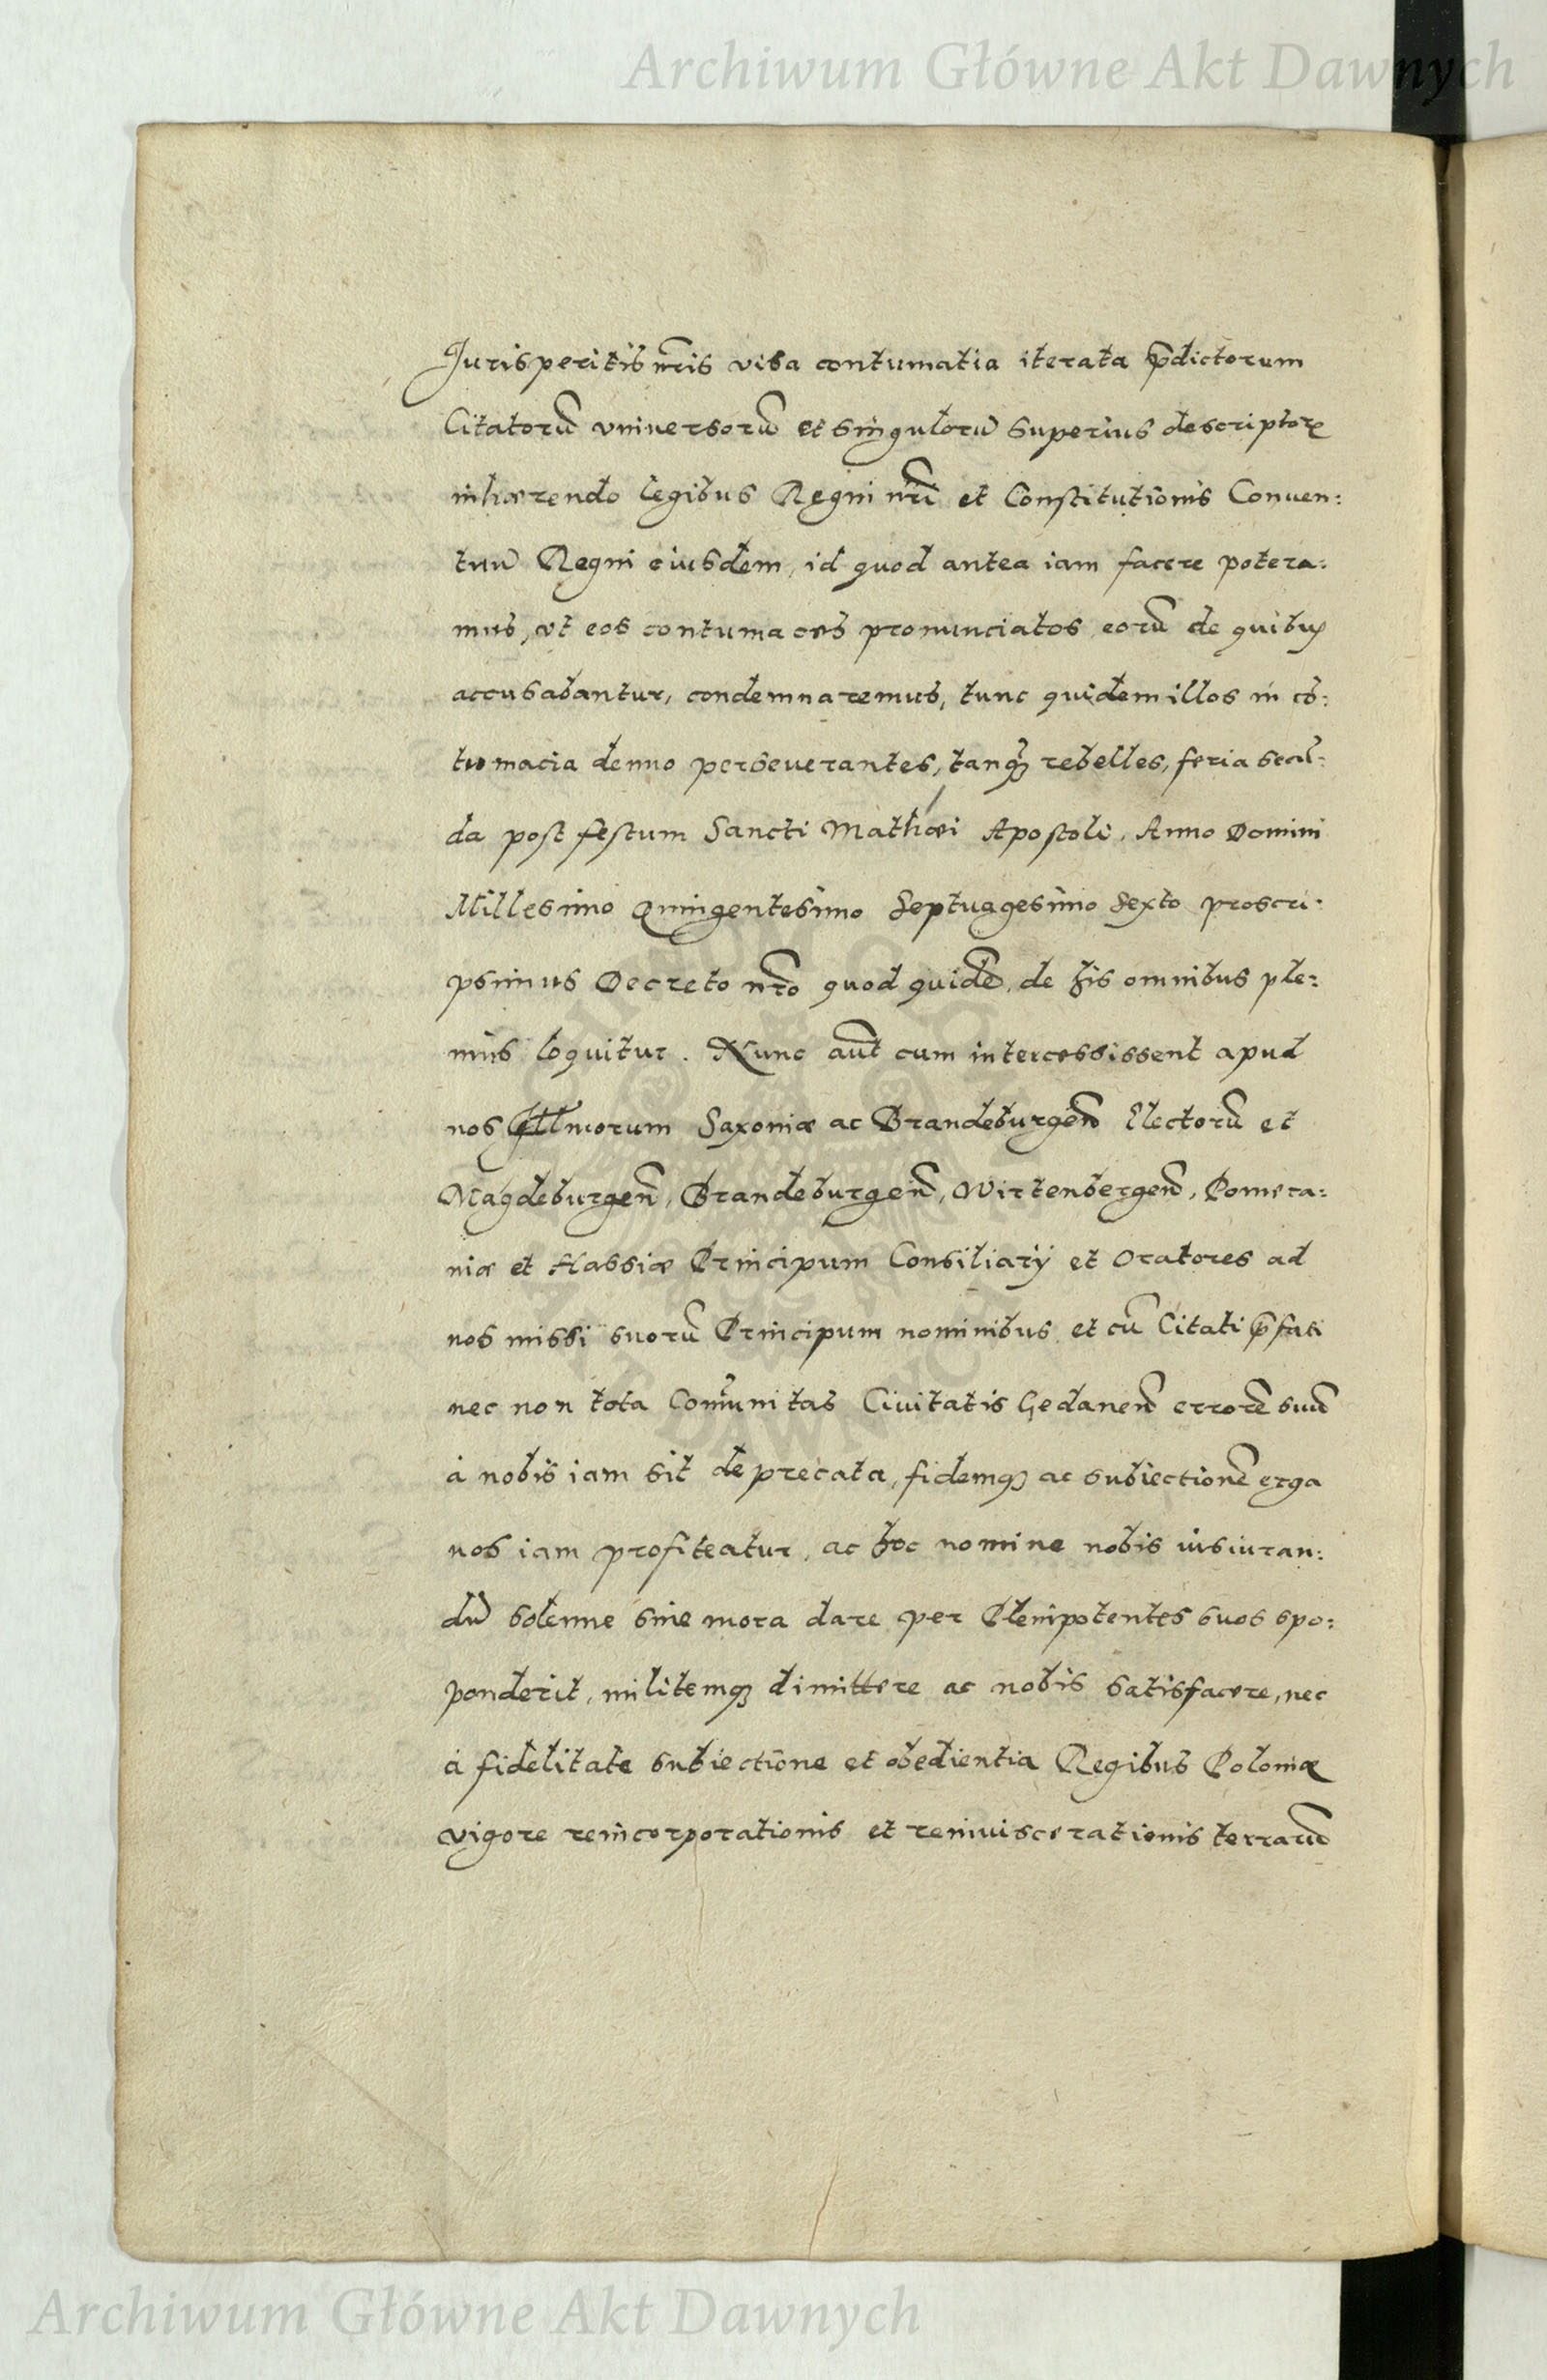 Archiwum Główne Akt Dawnych
Jurisperitis nr̃is visa contumatia iterata p̃dictorum
Citatorũ vniuersorũ et singulorũ superius descriptorꝝ
inhærendo legibus Regni nr̃i et Constitutionis Conuen:
tuũ Regni eiusdem, id quod antea iam facere potera:
mus, vt eos contumaces pronunciatos eorũ de quibus
accusabantur, condemnaremus, tunc quidem illos in cõ:
tumacia denuo perseuerantes, tanqꝫ rebelles, feria secũ:
da post festum Sancti Mathæi Apostoli, Anno Domini
Millesimo Quingentesimo Septuagesimo Sexto proscri:
psimus Decreto nr̃o quod quidẽ, de his omnibus ple:
nius loquitur. Nunc aũt cum intercessissent apud
nos Illmorum Saxoniæ ac Brandeburgeñ Electorũ et
Magdeburgeñ, Brandeburgeñ, Wirtenbergeñ, Pomera:
niæ et Hassiæ Principum Consiliarij et Oratores ad
nos missi suorũ Principum nominibus et cũ Citati p̃fati
nec non tota Com̃unitas Ciuitatis Gedaneñ errorẽ suũ
à nobis iam sit deprecata, fidemqꝫ ac subiectionẽ erga
nos iam profiteatur, ac hoc nomine nobis iusiuran:
dũ solenne sine mora dare per Plenipotentes suos spo:
ponderit, militemqꝫ dimittere ac nobis satisfacere, nec
à fidelitate subiectione et obedientia Regibus Poloniæ
vigore reincorporationis et reinuiscerationis terrarũ
Archiwum Główne Akt Dawnych